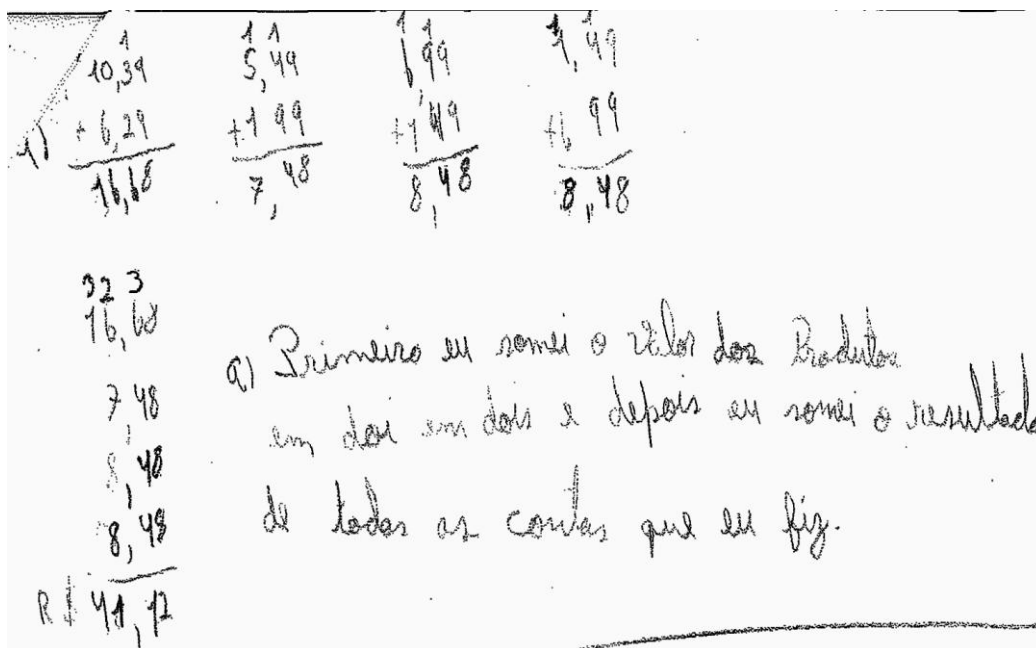 1 1 1 1 1 1
10,39 5,49 6,99 1,49
1) + 6,29 +1 99 +1 49 +6 99
16,68 7,48 8,48 8,48
3 2 3
16,68
7,48
8,48
8,48
R$ 41,12
a) Primeiro eu somei o valor dos Produtos
em doi em dois e depois eu somei o resultado
de todas as contas que eu fiz.